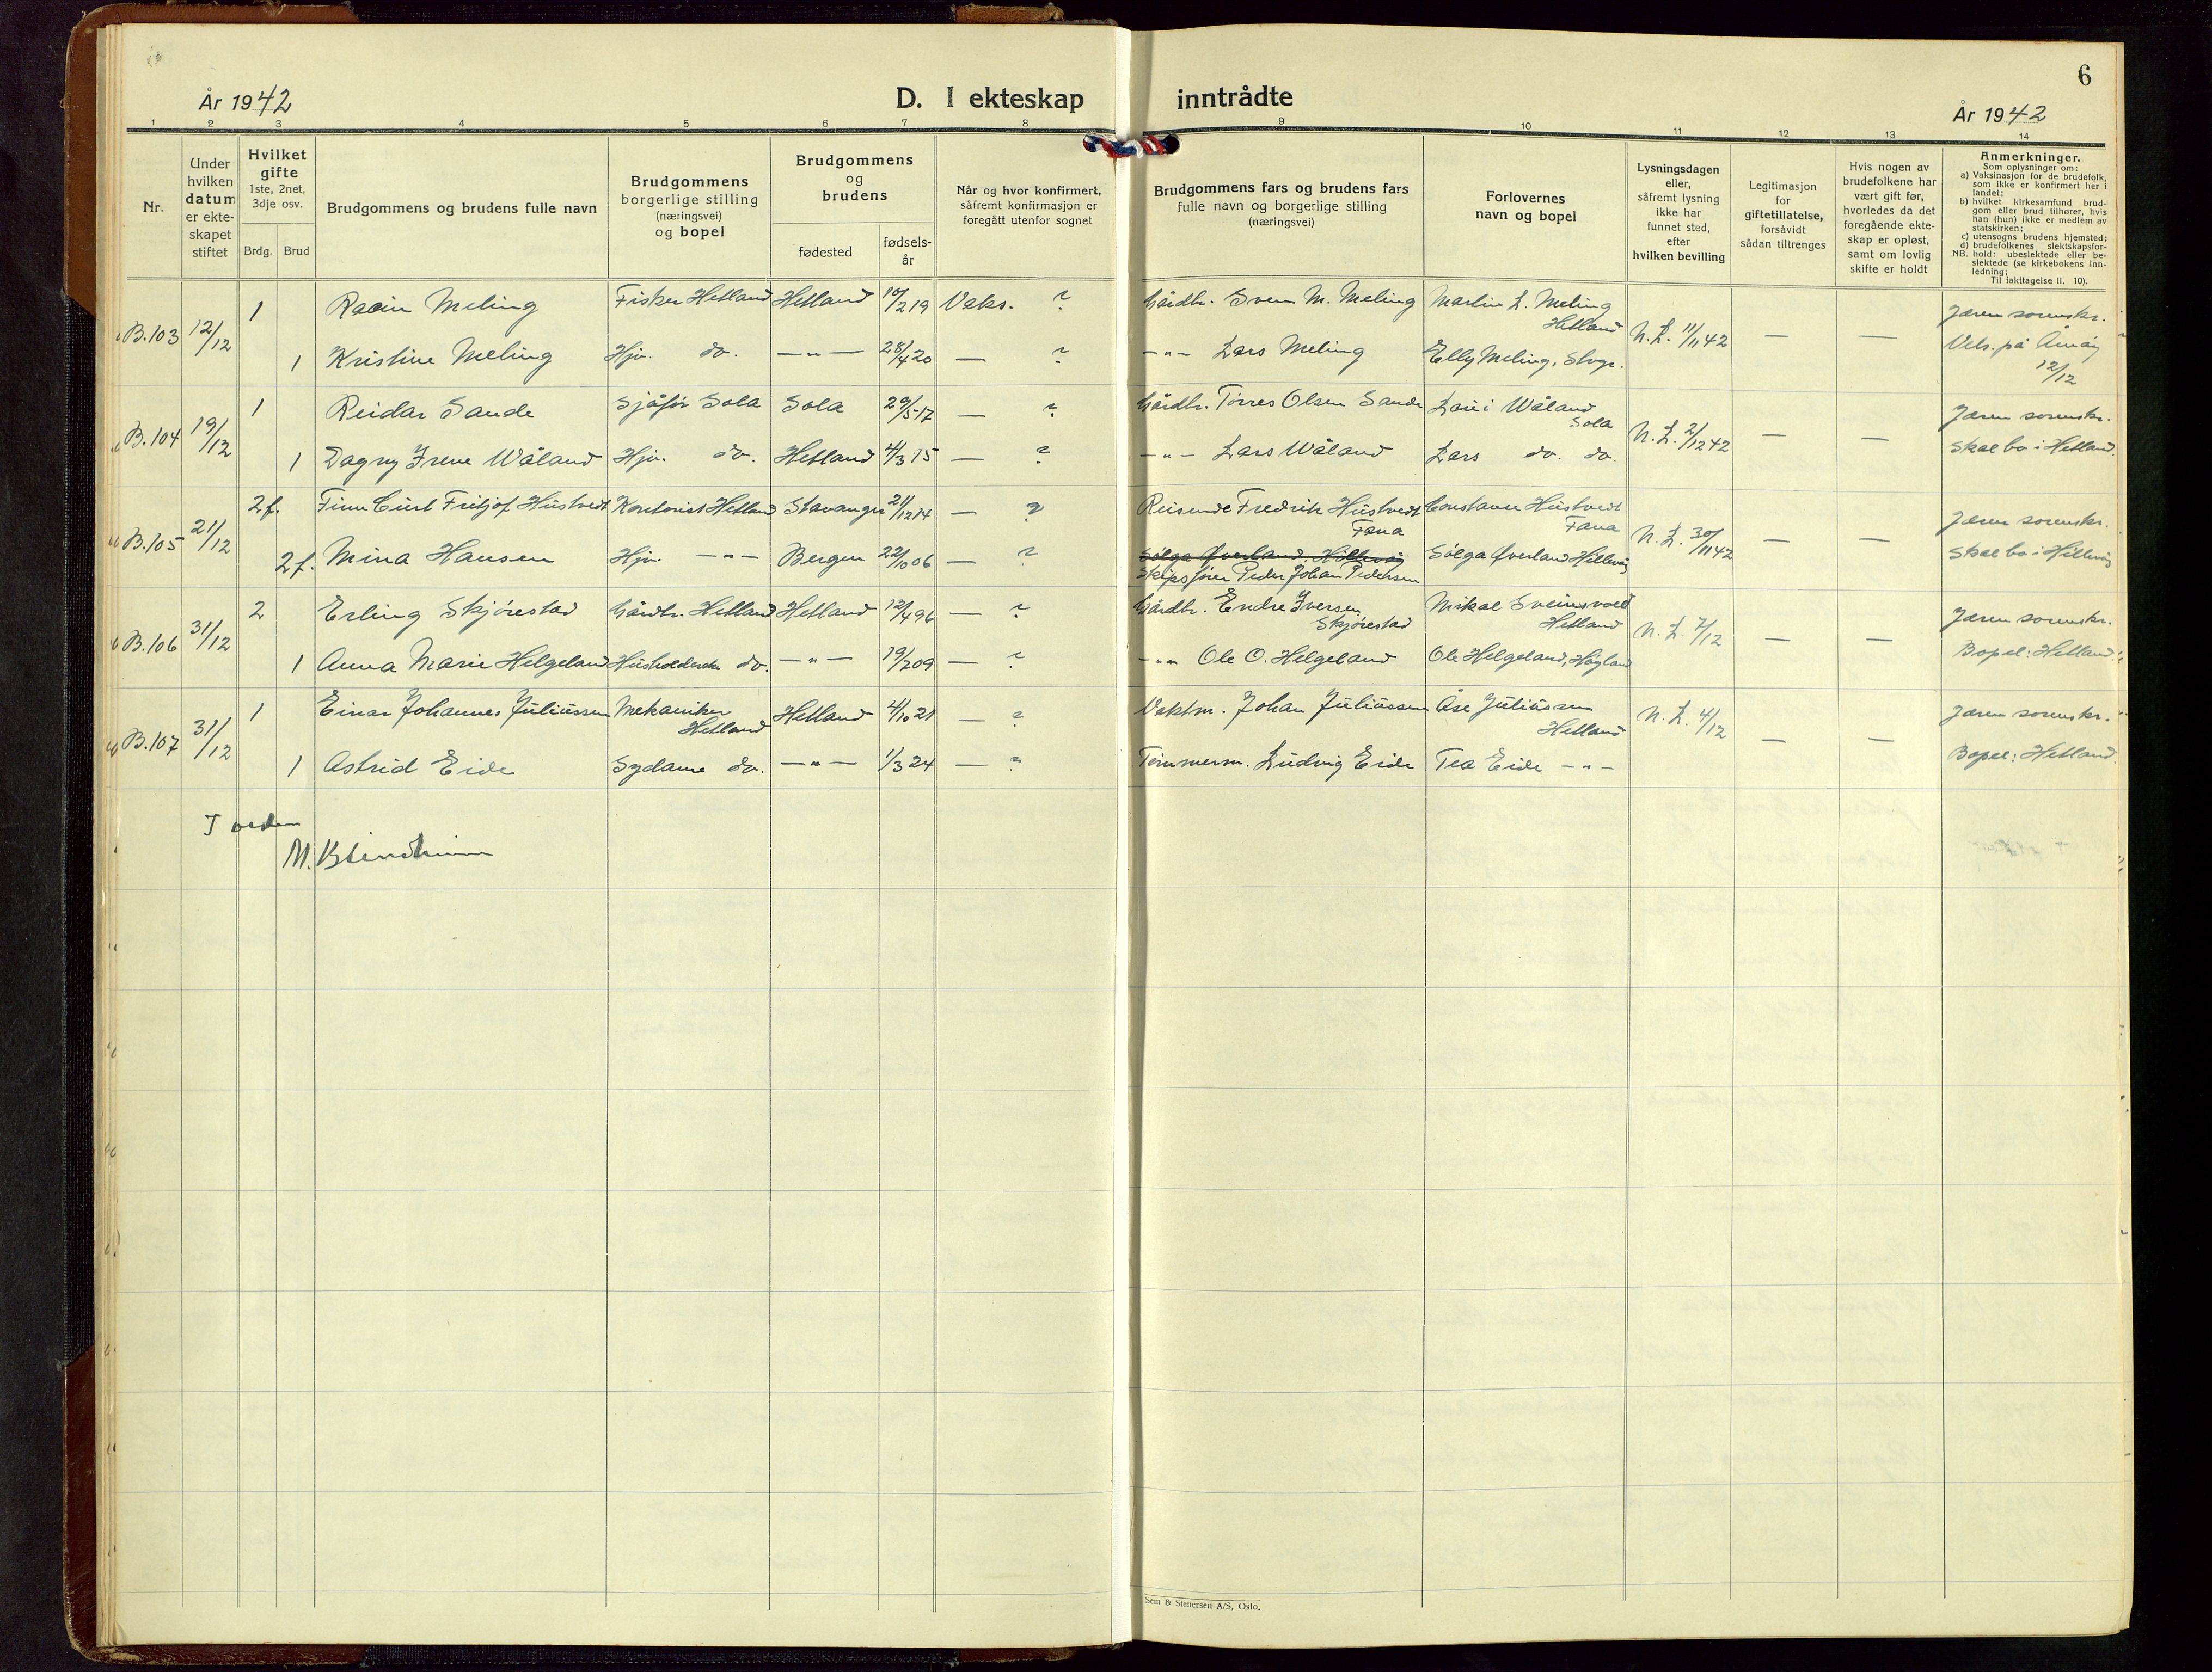 År 1942
D. I ekteskap
inntrådte
6
År 1942
1 2 3 4 5 6 7 8 9 10 11 12 13 14
Nr.
Under
hvilken
datum
er ekte-
skapet
stiftet
Hvilket
gifte
1ste, 2net,
3dje osv.
Brdg. Brud
Brudgommens og brudens fulle navn
Brudgommens
borgerlige stilling
(næringsvei)
og bopel
Brudgommens
og
brudens
fødested
fødsels-
år
Når og hvor konfirmert,
såfremt konfirmasjon er
foregått utenfor sognet
Brudgommens fars og brudens fars
fulle navn og borgerlige stilling
(næringsvei)
Forlovernes
navn og bopel
Lysningsdagen
eller,
såfremt lysning
ikke har
funnet sted,
efter
hvilken bevilling
Legitimasjon
for
giftetillatelse,
forsåvidt
sådan tiltrenges
Hvis nogen av
brudefolkene har
vært gift før,
hvorledes da det
foregående ekte-
skap er opløst,
samt om lovlig
skifte er holdt
Anmerkninger.
Som oplysninger om:
a) Vaksinasjon for de brudefolk,
som ikke er konfirmert her i
landet;
b) hvilket kirkesamfund brud-
gom eller brud tilhører, hvis
han (hun) ikke er medlem av
statskirken;
c) utensogns brudens hjemsted;
d) brudefolkenes slektskapsfor-
hold: ubeslektede eller be-
slektede (se kirkebokens inn-
ledning;
NB.
Til iakttagelse II. 10).
B.103 12/12 1 Meling Fisker Hetland Hetland 19 Vaks. ? Gårdbr. Sven M. Meling Martin L. Meling
Hetland N. L. 11/11 42 — — Jæren sorenskr.
1 Kristine Meling Hjv. do. —"— 28/4 20 — ? —"— Lars Meling Elly Meling, Stvgr. Vels. på Åmøy
12/12
B.104 19/12 1 Reidar Sande Sjåfør Sola Sola 29/5 17 — ? Gårdbr. Torres Olsen Sande Wåland
Sola N. L. 2/12 42 — — Jæren sorenskr.
1 Dagny Irene Wåland Hjv. do. Hetland 4/3 15 — ? —"— Lars Wåland Lars do. do. Skal bo i Hetland.
B.105 21/12 2 f. Finn Curt Fritjof Hustvedt Kontorist Hetland Stavanger 21/12 14 — ? Reisende Fredrik Hustvedt
Fana Constance Hustvedt
Fana N. L. 30/11 42 Jæren sorenskr.
2 f. Mina Hansen Hjv. —"— Bergen 22/10 06 — ? Sølga Øverland Hillevåg
Skipsfører Peder Johan Pedersen Sølga Øverland Hillevåg Skal bo i Hillevåg
B.106 31/12 2 Erling Skjørestad Gårdbr. Hetland Hetland 12/4 96 — ? Gårdbr. Endre Iversen
Skjørestad Mikal Sveinsvoll
Hetland N. L. 7/12 — — Jæren sorenskr.
1 Anna Marie Helgeland Husholderske do. —"— 19/2 09 — ? —"— Ole O. Helgeland Ole Helgeland, Høgland Bopel: Hetland
B.107 31/12 1 Einar Johannes Juliussen Mekaniker
Hetland Hetland 4/10 21 — ? Vaktm. Johan Juliussen Åse Juliussen
Hetland N. L. 4/12 — — Jæren sorenskr.
1 Astrid Eide Sydame do. —"— 1/3 24 — " Tømmerm. Ludvig Eide Tea Eide —"— Bopel: Hetland.
I orden
M. Blindheim
Sem & Stenersen A/S, Oslo.